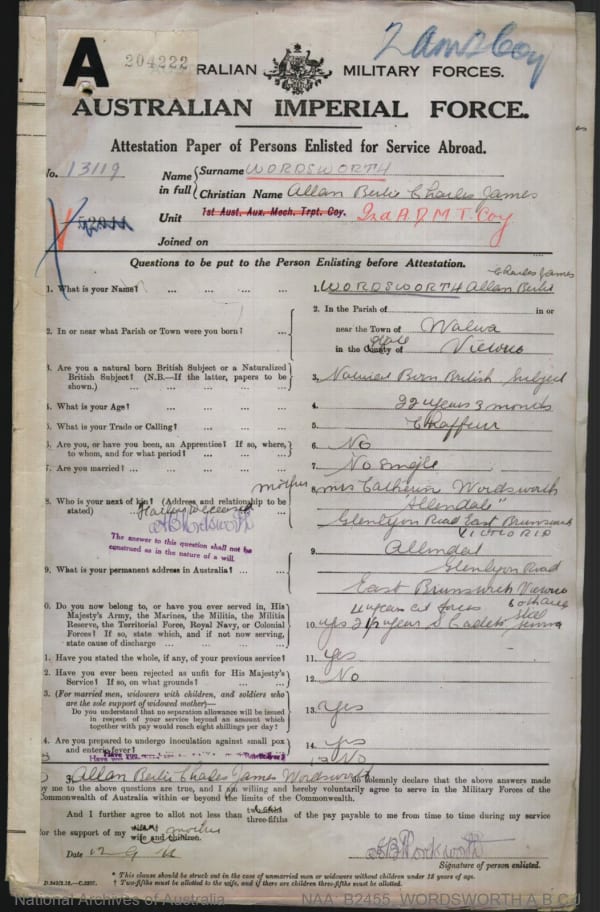 A
204222
2 amt Coy
RALIAN MILITARY FORCES.
AUSTRALIAN IMPERIAL FORCE.
Attestation Paper of Persons Enlisted for Service Abroad.
No. 13119
Name in full
Surname WORDSWORTH
Christian Name Allan Bertie Charles James
Unit 1st Aust. Aux. Mech. Trpt. Coy. 2nd A.D.M.T. Coy
Joined on
Questions to be put to the Person Enlisting before Attestation.
Charles James
1. What is your Name? ... ... ... 1. WORDSWORTH Allan Bertie
2. In or near what Parish or Town were you born? ... 2. In the Parish of in or
near the Town of Walwa
in the County of State Victoria
3. Are you a natural born British Subject or a Naturalized British Subject? (N.B.—If the latter, papers to be shown.) ... ... 3. Natural Born British Subject
4. What is your Age? ... ... ... 4. 22 years 3 months
5. What is your Trade or Calling? ... ... 5. Chaffeur
6. Are you, or have you been, an Apprentice? If so, where, to whom, and for what period? ... ... 6. No
7. Are you married? ... ... ... 7. No Single
8. Who is your next of kin? (Address and relationship to be stated) mother 8. Mrs Catherine Wordsworth
Father deceased "Allendale"
A B Wordsworth Glenlyon Road East Brunswick
VICTORIA
The answer to this question shall not be construed as in the nature of a will.
9. What is your permanent address in Australia? ... 9. Allendale
Glenlyon Road
East Brunswick Victoria
10. Do you now belong to, or have you ever served in, His Majesty's Army, the Marines, the Militia, the Militia Reserve, the Territorial Force, Royal Navy, or Colonial Forces? If so, state which, and if not now serving, state cause of discharge ... ... 10. yes 2½ years S Cadets
Cit forces
Still
11. Have you stated the whole, if any, of your previous service? 11. yes
12. Have you ever been rejected as unfit for His Majesty's Service? If so, on what grounds? ... ... 12. No
13. (For married men, widowers with children, and soldiers who are the sole support of widowed mother)—
Do you understand that no separation allowance will be issued in respect of your service beyond an amount which together with pay would reach eight shillings per day? 13. yes
14. Are you prepared to undergo inoculation against small pox and enteric fever? 14. yes
No
I, Allan Bertie Charles James Wordsworth do solemnly declare that the above answers made by me to the above questions are true, and I am willing and hereby voluntarily agree to serve in the Military Forces of the Commonwealth of Australia within or beyond the limits of the Commonwealth.
And I further agree to allot not less than three-fifths of the pay payable to me from time to time during my service
for the support of my wife and children. mother
Date 12 9 16
A B Wordsworth
Signature of person enlisted.
* This clause should be struck out in the case of unmarried men or widowers without children under 18 years of age.
† Two-fifths must be allotted to the wife, and if there are children three-fifths must be allotted.
National Archives of Australia
NAA: B2455, WORDSWORTH A B C J